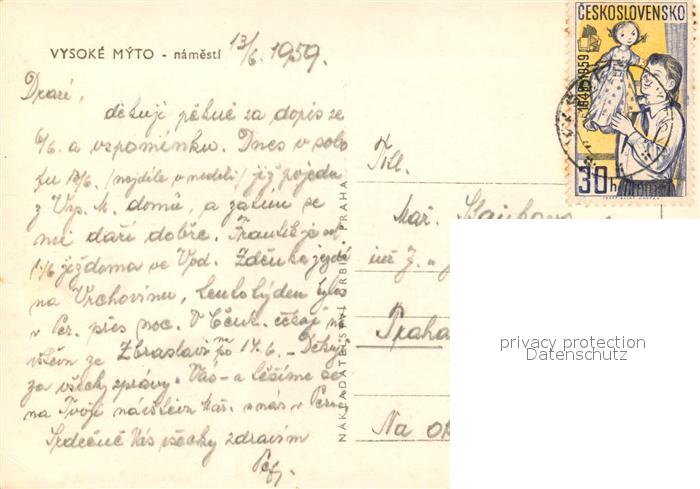 VYSOKÉ MÝTO - náměstí
13/6. 1959.
Drazí,
děkuji pěkně za dopis ze
6/6. a vzpomínku. Dnes v sobo
tu 13/6. /nejdéle v neděli/ již pojedu
z Vys. M. domů, a zatím se
mi daří dobře. Frantík je od
1/6 již doma ve Vod. Zdeňka jezdí
na Vrchovinu, tento týden byla
v Per. přes noc. V Čenk. čekají
ze Zbraslavi po 14.6. - Děkuji
za všech zprávy. Vás - a těšíme se
na Tvoji návštěvu u nás v
Srdečně Vás všechny zdravím
Pep.
NAKLADATELSTVÍ ORBIS, PRAHA
ČESKOSLOVENSKO
1949-1959
30h
Kl.
Mař.
Praha
Na
privacy protection
Datenschutz